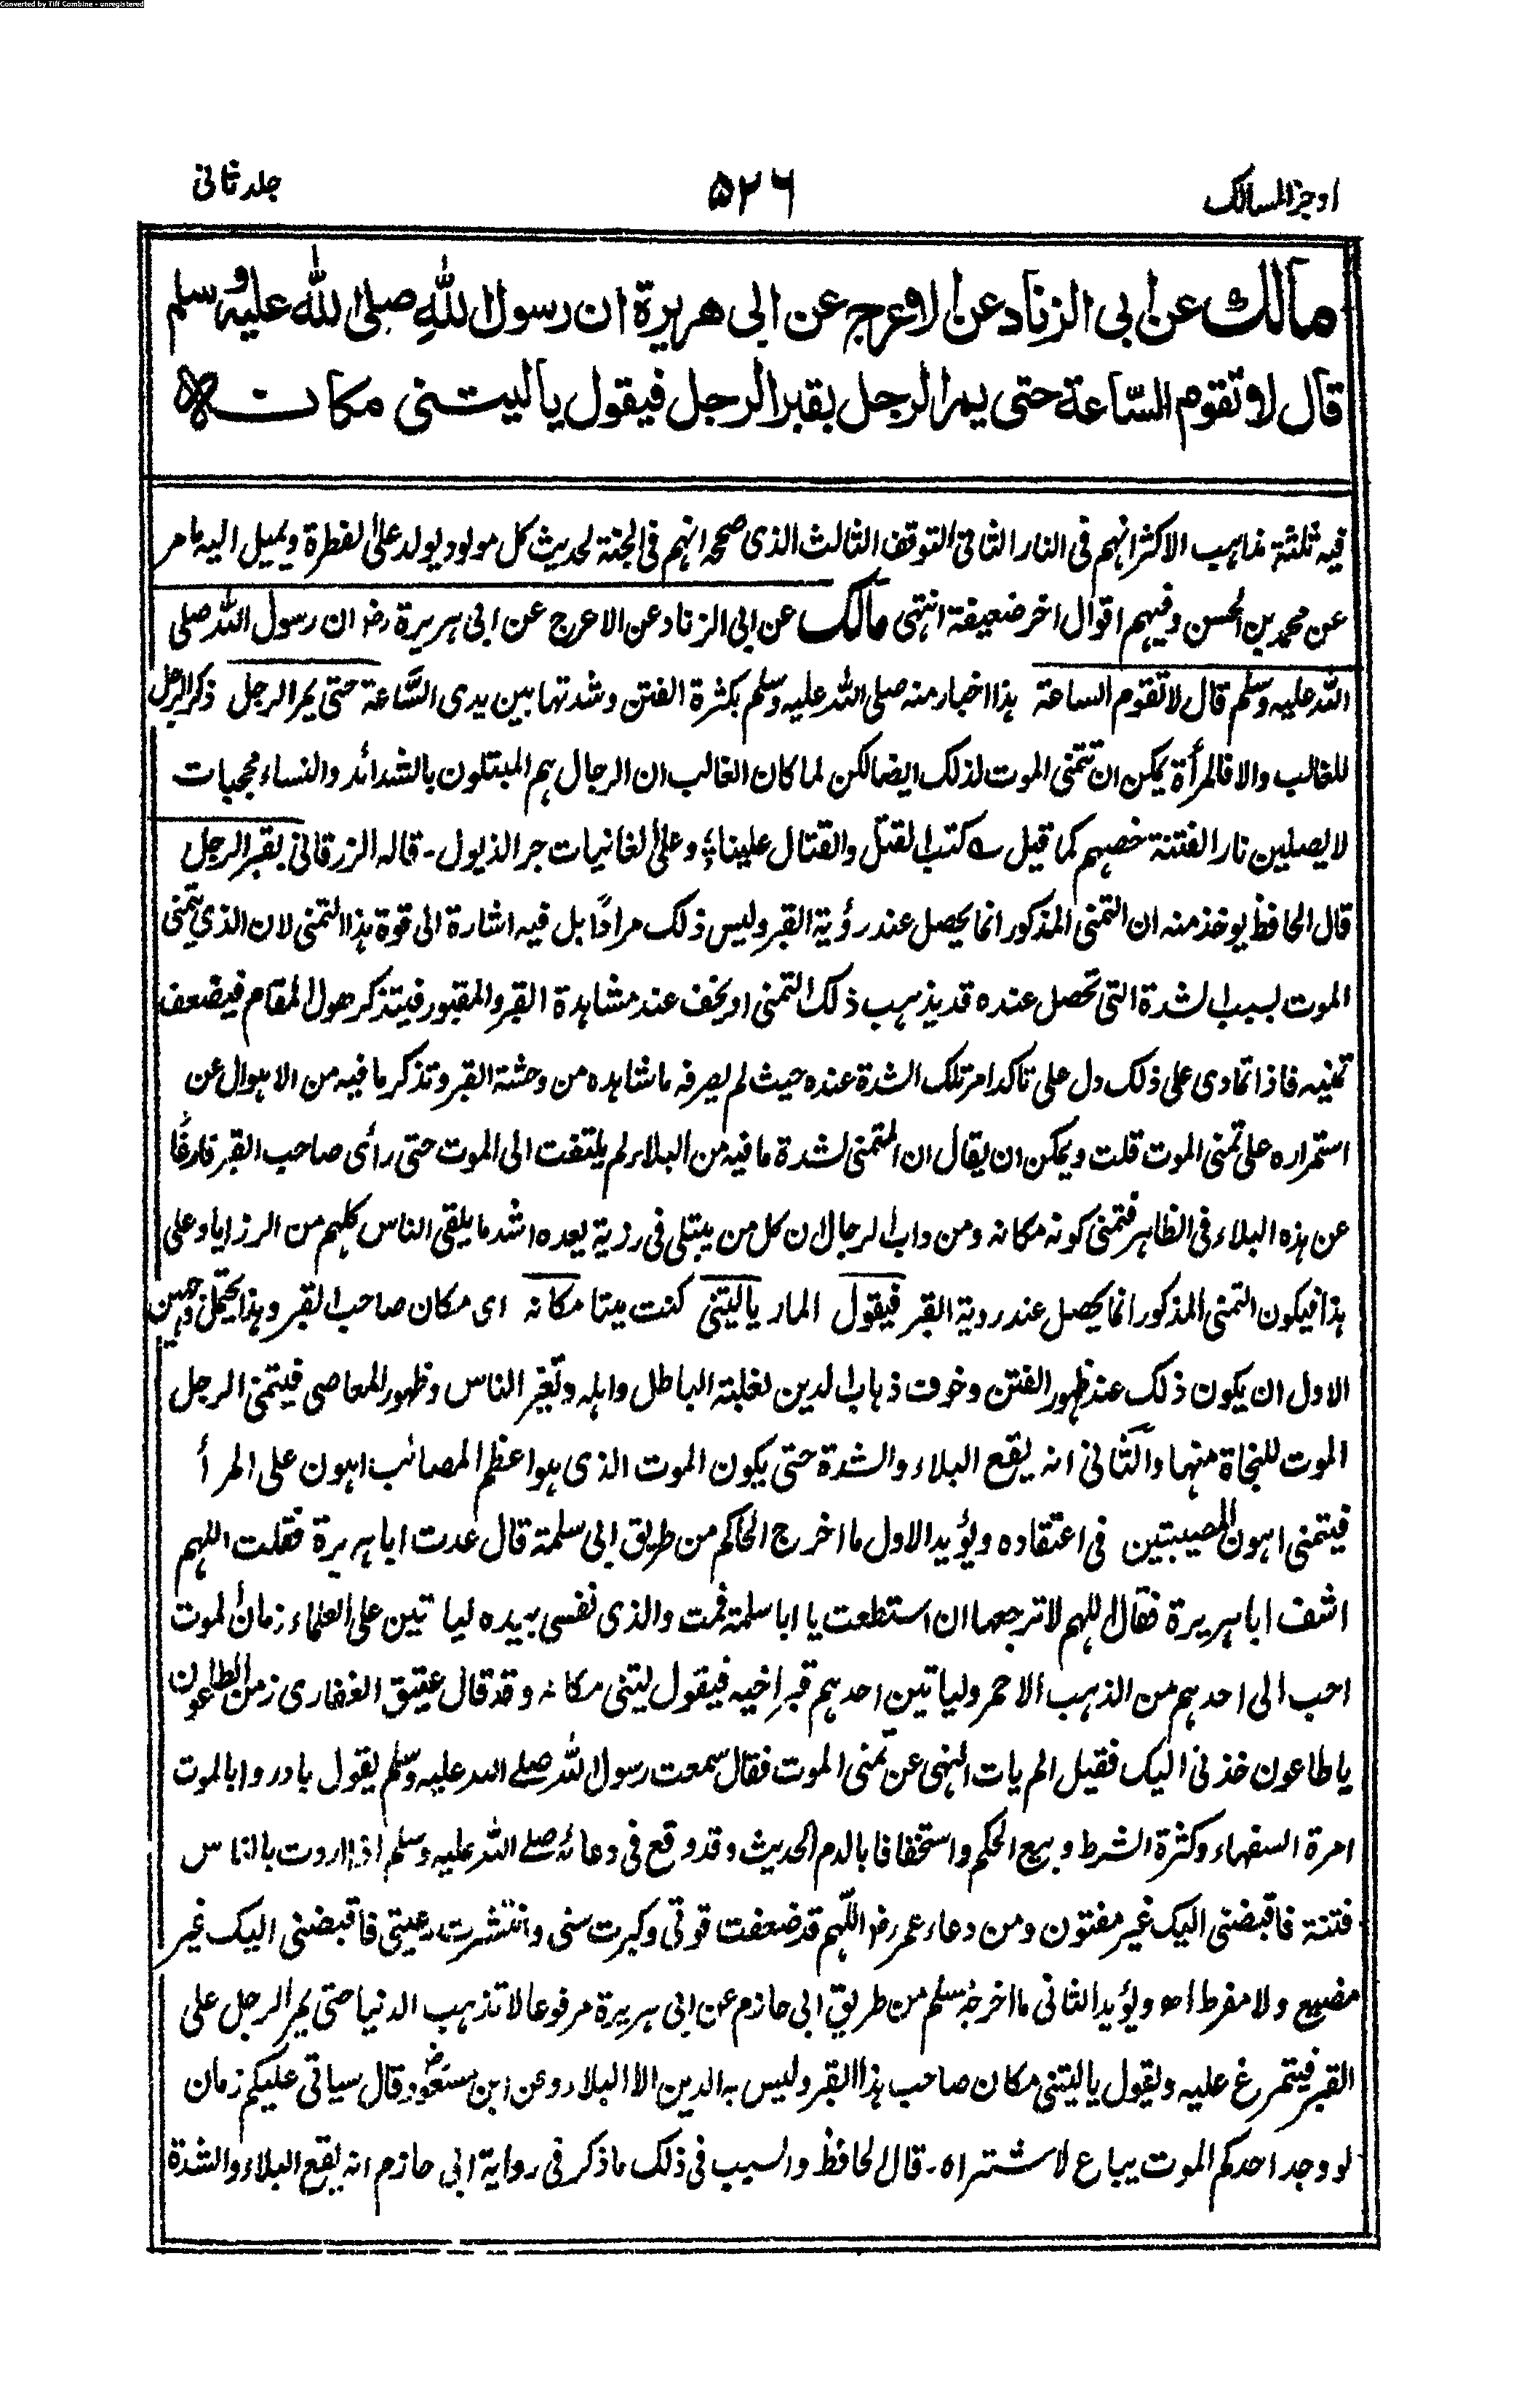 Converted by Tiff Combine - unregistered
اوجز المسالك
۵۲۶
جلد ثانی
مالك عن ابی الزناد عن الاعرج عن ابی هریرة ان رسول الله صلی الله علیه وسلم
قال لا تقوم الساعة حتی یمر الرجل بقبر الرجل فیقول یا لیتنی مکانه
فیه ثلثة مذاہب الاکثر انہم فی النار الثانی التوقف الثالث الذی صححہ انہم فی الجنة لحدیث کل مولود یولد علی الفطرة ویمیل الیہ ما مر
عن محمد بن الحسن وفیہم اقوال اخر ضعیفة انتہی مالک عن ابی الزناد عن الاعرج عن ابی ہریرة رض ان رسول اللہ صلی
اللہ علیہ وسلم قال لا تقوم الساعة ہذا اخبار منہ صلی اللہ علیہ وسلم بکثرة الفتن وشدتہا بین یدی الساعة حتی یمر الرجل ذکر الرجل
للغالب والا فالمرأة یمکن ان تتمنی الموت لذلک ایضا لکن لما کان الغالب ان الرجال ہم المبتلون بالشدائد والنساء محجبات
لا یصلین نار الفتنة خصہم کما قیل ے کتب القتل والقتال علینا ؛ وعلی الغانیات جر الذیول۔ قالہ الزرقانی بقبر الرجل
قال الحافظ یوخذ منہ ان التمنی المذکور انما یحصل عند رؤیة القبر ولیس ذلک مرادًا بل فیہ اشارة الی قوة ہذا التمنی لان الذی یتمنی
الموت لسبب الشدة التی تحصل عندہ قد یذہب ذلک التمنی او یخف عند مشاہدة القبر والمقبور فیتذکر ھول المقام فیضعف
تمنیہ فاذا تمادی علی ذلک دل علی تاکد امر تلک الشدة عندہ حیث لم یصرفہ ما شاہدہ من وحشة القبر وتذکر ما فیہ من الاہوال عن
استمرارہ علی تمنی الموت قلت ویمکن ان یقال ان المتمنی لشدة ما فیہ من البلاء لم یلتفت الی الموت حتی رأی صاحب القبر فارغًا
عن ہذہ البلاء فی الظاہر فتمنی کونہ مکانہ ومن داب الرجال ان کل من یبتلی فی رزیة یعدہ اشد ما یلقی الناس کلہم من الرزایا وعلی
ہذا فیکون التمنی المذکور انما یحصل عند رویة القبر فیقول المار یا لیتنی کنت میتا مکانہ ای مکان صاحب القبر وہذا یحتمل وجہین
الاول ان یکون ذلک عند ظہور الفتن وخوف ذہاب الدین لغلبة الباطل واہلہ وتغیر الناس وظہور المعاصی فیتمنی الرجل
الموت للنجاة منہا والثانی انہ یقع البلاء والشدة حتی یکون الموت الذی ہو اعظم المصائب اہون علی المرأ
فیتمنی اہون المصیبتین فی اعتقادہ ویؤید الاول ما اخرج الحاکم من طریق ابی سلمة قال عدت ابا ہریرة فقلت اللہم
اشف ابا ہریرة فقال اللہم لا ترجعہا ان استطعت یا ابا سلمة فمت والذی نفسی بیدہ لیاتین علی العلماء زمان الموت
احب الی احدہم من الذہب الاحمر ولیاتین احدہم قبر اخیہ فیقول لیتنی مکانہ وقد قال عیتق الغفاری زمن الطاعون
یا طاعون خذنی الیک فقیل الم یات النہی عن تمنی الموت فقال سمعت رسول اللہ صلے اللہ علیہ وسلم یقول بادروا بالموت
امرة السفہاء وکثرة الشرط وبیع الحکم واستخفافا بالدم الحدیث وقد وقع فی دعائہ صلے اللہ علیہ وسلم اذا اردت بالناس
فتنة فاقبضنی الیک غیر مفتون ومن دعاء عمر رض اللہم قد ضعفت قوتی وکبرت سنی وانتشرت رعیتی فاقبضنی الیک غیر
مضیع ولا مفرط اھ ویؤید الثانی ما اخرجہ مسلم من طریق ابی حازم عن ابی ہریرة مرفوعا لا تذہب الدنیا حتی یمر الرجل علی
القبر فیتمرغ علیہ ویقول یا لیتنی مکان صاحب ہذا القبر ولیس بہ الدین الا البلاء وعن ابن مسعود رض قال سیاتی علیکم زمان
لو وجد احدکم الموت یباع لاشتراہ۔ قال الحافظ والسبب فی ذلک ما ذکر فی روایة ابی حازم انہ یقع البلاء والشدة